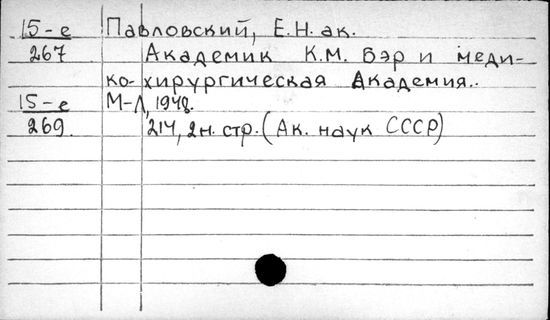 15-е Павловский, Е.Н. ак.
267 Академик К.М. Бэр и меди-
ко-хирургическая Академия..
15-е М-Л, 1948.
269. 214, 2н. стр. (Ак. наук СССР)